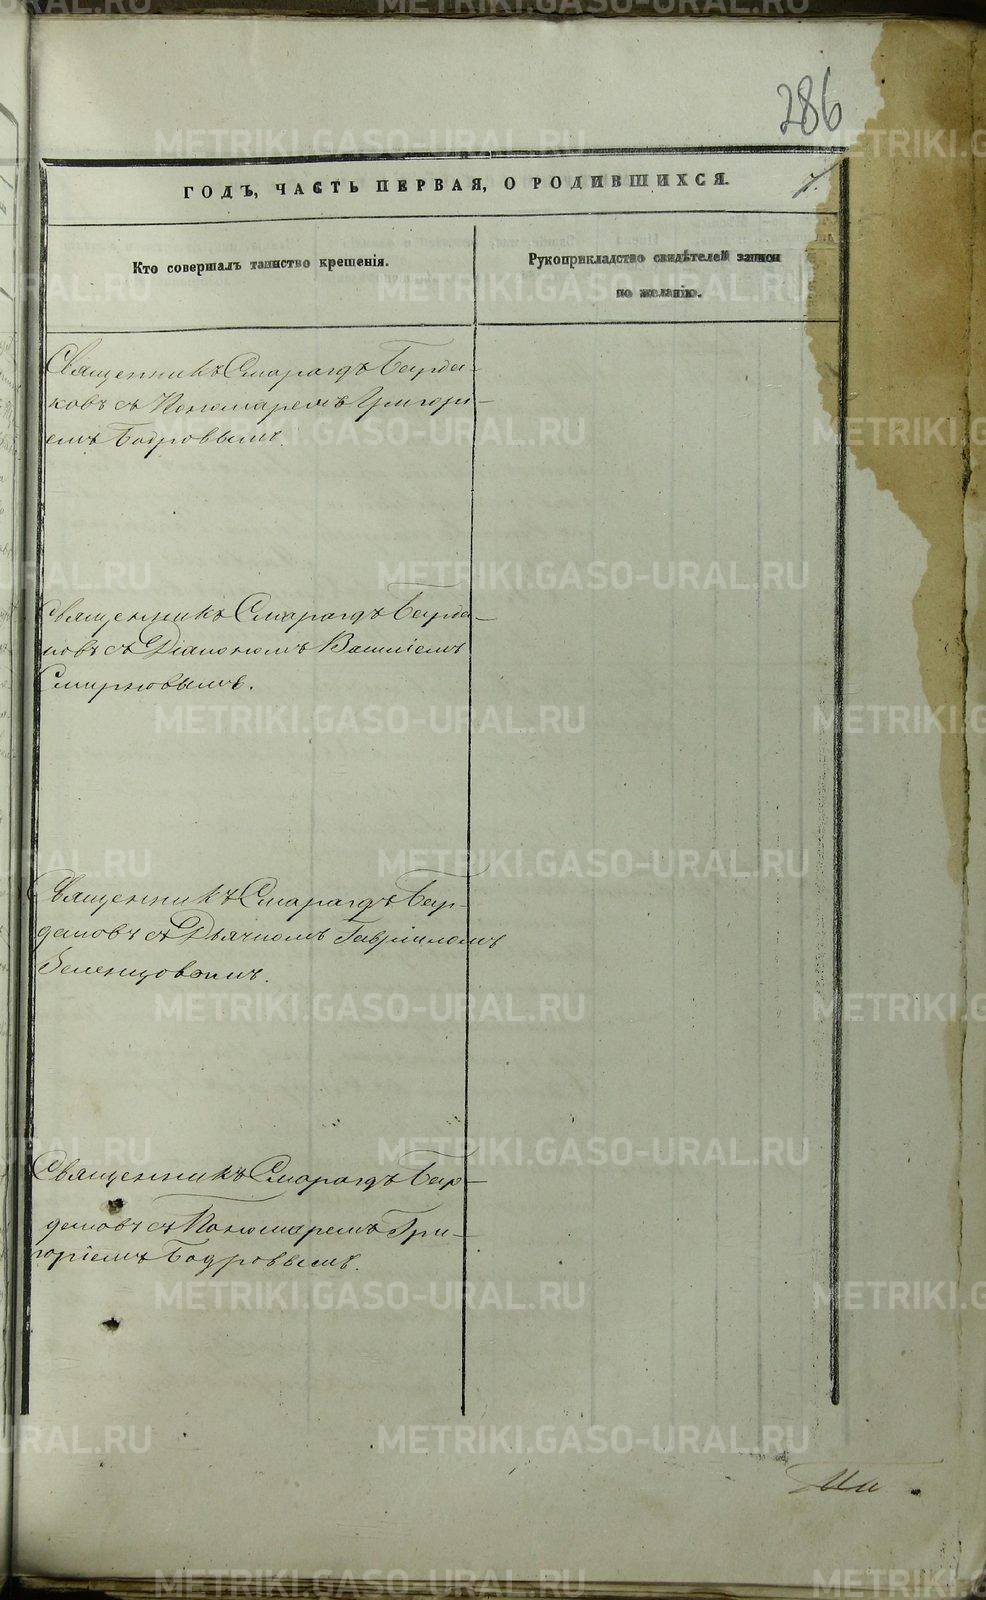 286
ГОДЪ, ЧАСТЬ ПЕРВАЯ, О РОДИВШИХСЯ.
7.
Кто совершалъ таинство крещенія.
Рукоприкладство свидѣтелей записи
по желанію.
Священникъ Смарагдъ Бурда-
ковъ съ Пономаремъ Григорі-
емъ Бодровымъ.
Священникъ Смарагдъ Бурда-
ковъ съ Діакономъ Василіемъ
Смирновымъ.
Священникъ Смарагдъ Бур-
даковъ съ Дьячкомъ Гавріиломъ
Зеленцовымъ.
Священникъ Смарагдъ Бур-
даковъ съ Пономаремъ Гри-
горіемъ Бодровымъ.
METRIKI.GASO-URAL.RU